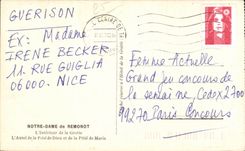 GUERISON
Ex: Madame
IRENE BECKER
11. RUE GUIGLIA
06000. NICE
NOTRE-DAME de REMONOT
L'Intérieur de la Grotte
L'Autel de la Pitié de Dieu et de la Pitié de Marie
Femme Actuelle
Grand jeu concours de
la semaine Cedex 2700
99270 Paris Concours